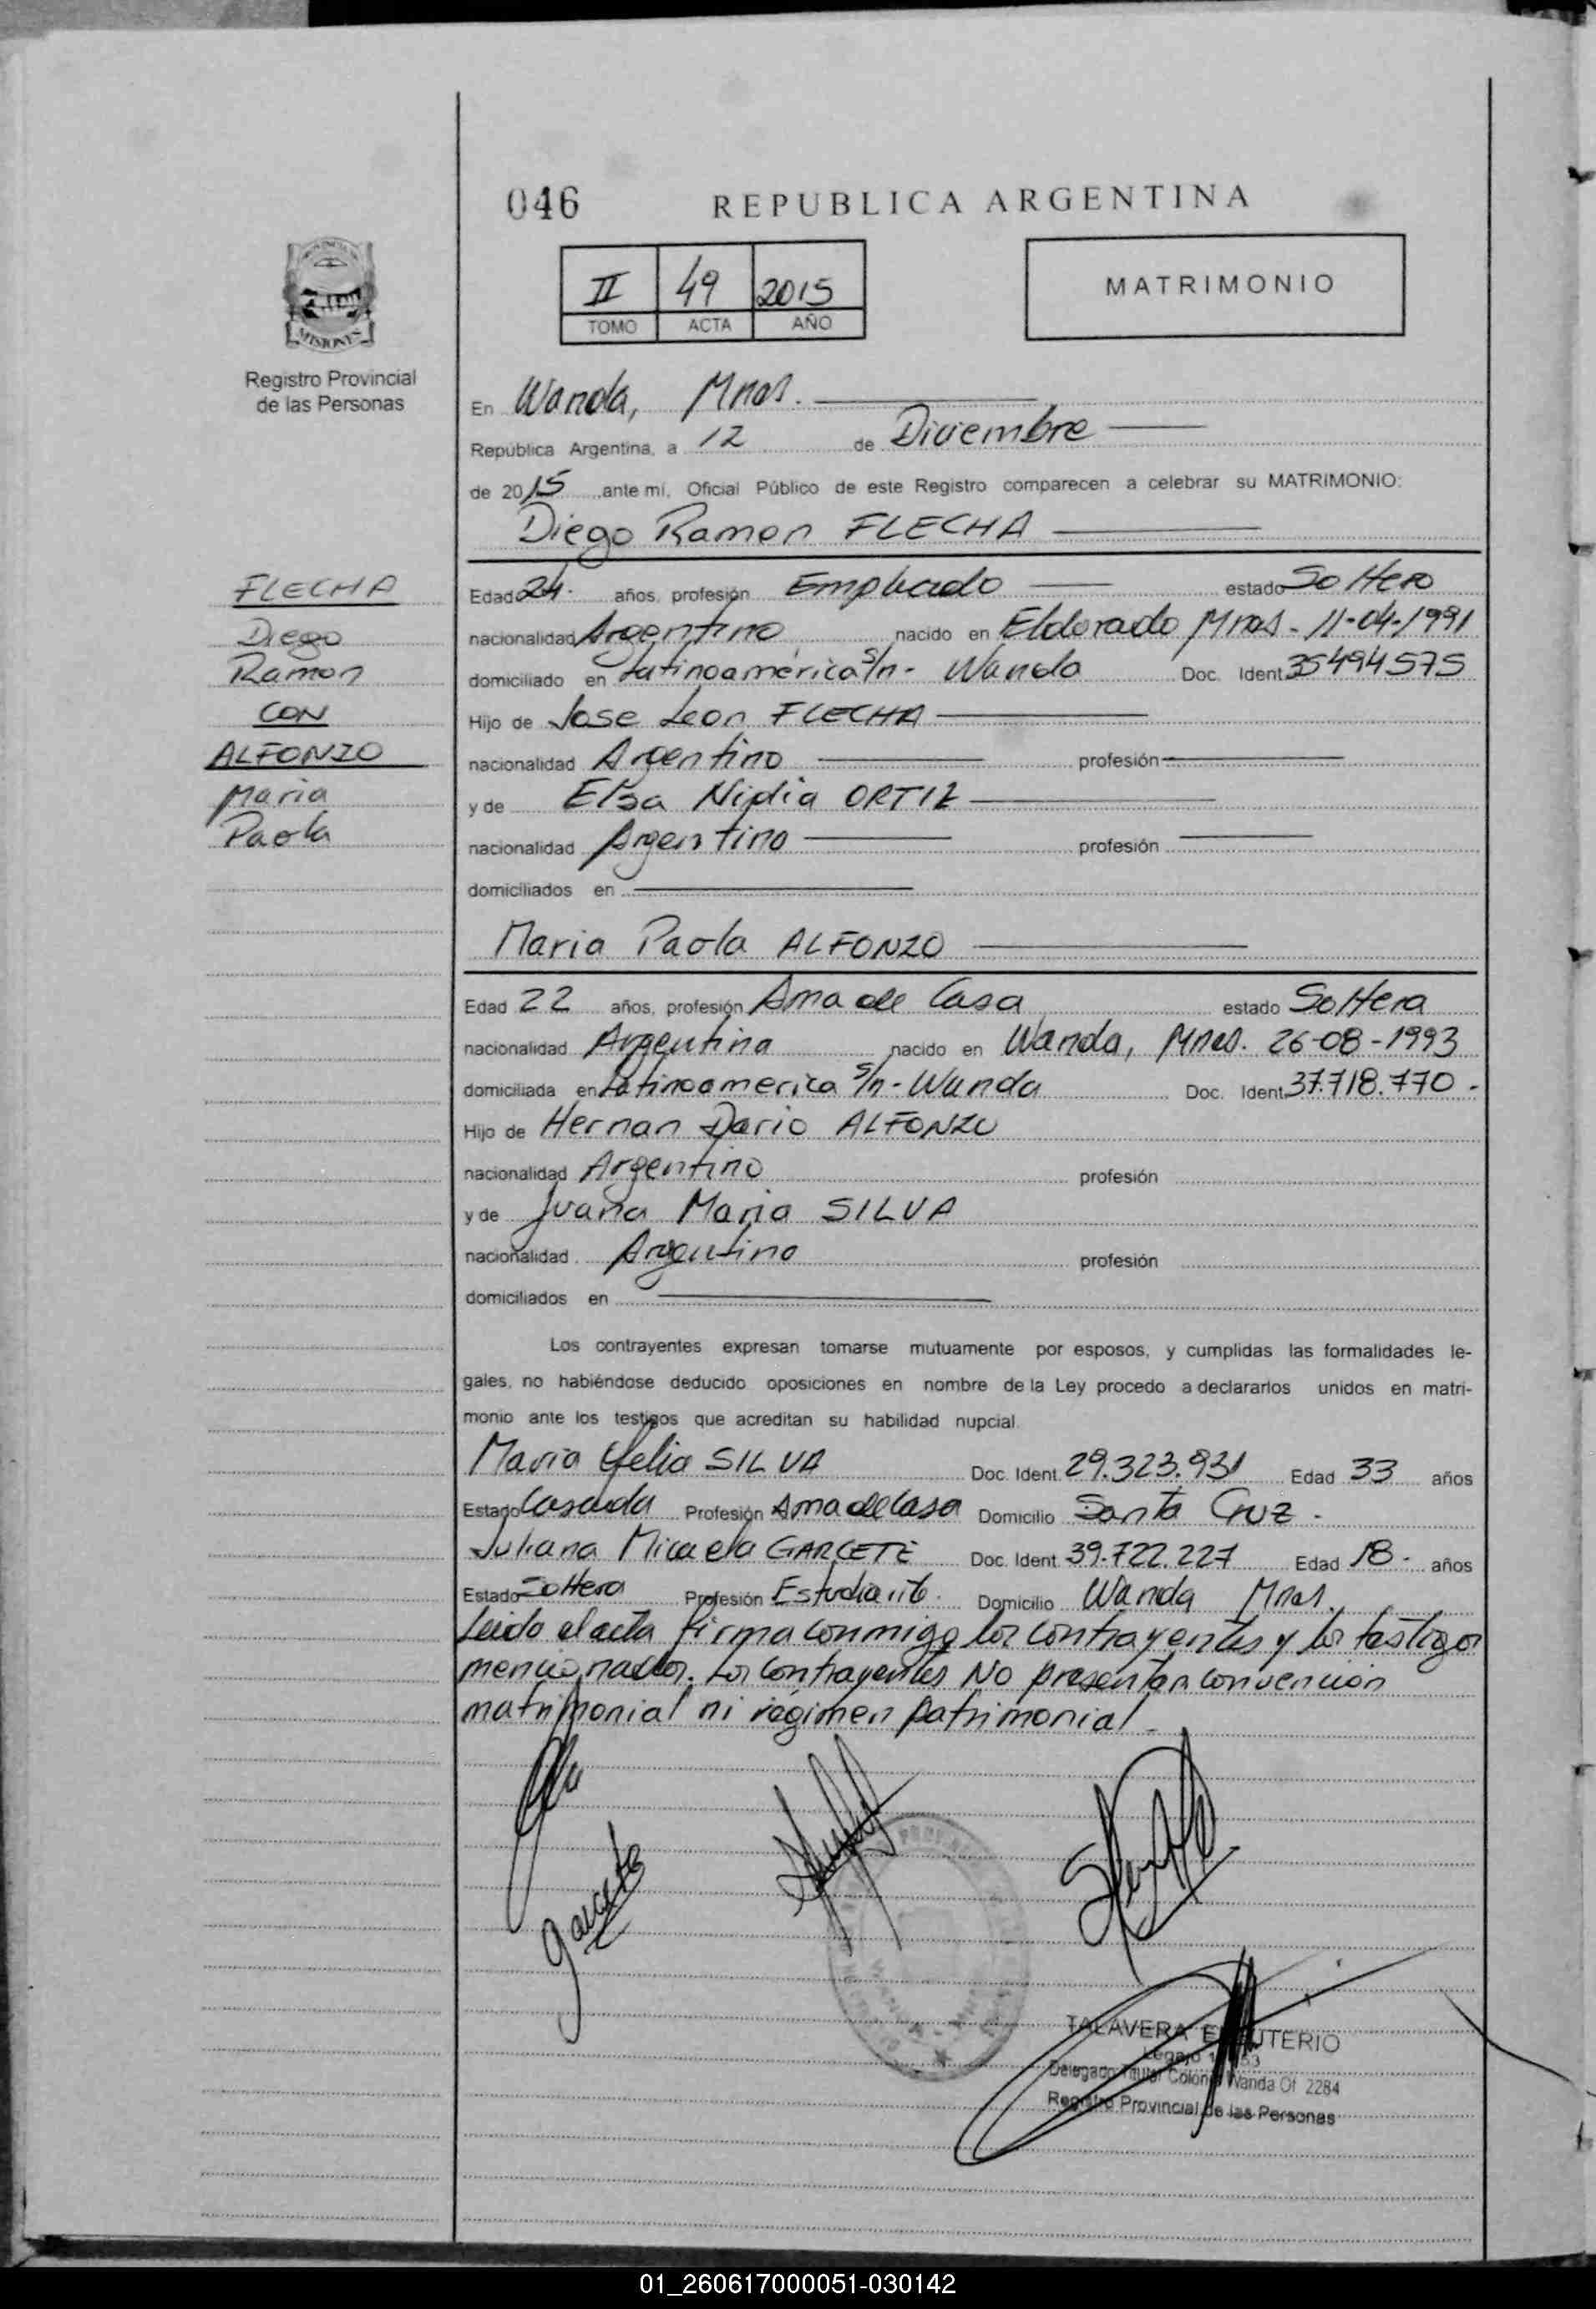 046
REPUBLICA ARGENTINA
II 49 2015
TOMO ACTA AÑO
MATRIMONIO
MISIONES
Registro Provincial
de las Personas
En Wanda, Mnes.
República Argentina, a 12 de Diciembre
de 2015 ,ante mí, Oficial Público de este Registro comparecen a celebrar su MATRIMONIO:
Diego Ramon FLECHA
FLECHA
Diego
Ramon
CON
ALFONZO
Maria
Paola
Edad 24. años, profesión Empleado estado Soltero
nacionalidad Argentino nacido en Eldorado Mnes - 11-04-1991
domiciliado en Latinoamérica S/n - Wanda Doc. Ident. 35494575
Hijo de Jose Leon FLECHA
nacionalidad Argentino profesión
y de Elsa Nidia ORTIZ
nacionalidad Argentino profesión
domiciliados en
Maria Paola ALFONZO
Edad 22 años, profesión Ama de Casa estado Soltera
nacionalidad Argentina nacido en Wanda, Mnes. 26-08-1993
domiciliada en Latinoamerica S/n - Wanda Doc. Ident. 37.718.770 -
Hijo de Hernan Dario ALFONZO
nacionalidad Argentino profesión
y de Juana Maria SILVA
nacionalidad Argentino profesión
domiciliados en
Los contrayentes expresan tomarse mutuamente por esposos, y cumplidas las formalidades le-
gales, no habiéndose deducido oposiciones en nombre de la Ley procedo a declararlos unidos en matri-
monio ante los testigos que acreditan su habilidad nupcial.
Maria SILVA Doc. Ident. 29.323.931 Edad 33 años
Estado Casada Profesión Ama de Casa Domicilio Santa Cruz -
Juliana Micaela GARCETE Doc. Ident. 39.722.227 Edad 18 - años
Estado Soltera Profesión Estudiante. Domicilio Wanda Mnes.
Leido el acta firma conmigo los contrayentes y los testigos
mencionados. Los contrayentes No presentan convención
matrimonial ni régimen patrimonial -
Garcete
TALAVERA ELEUTERIO
Legajo
Delegado Titular Colonia Wanda Of 2284
Registro Provincial de las Personas
01_260617000051-030142